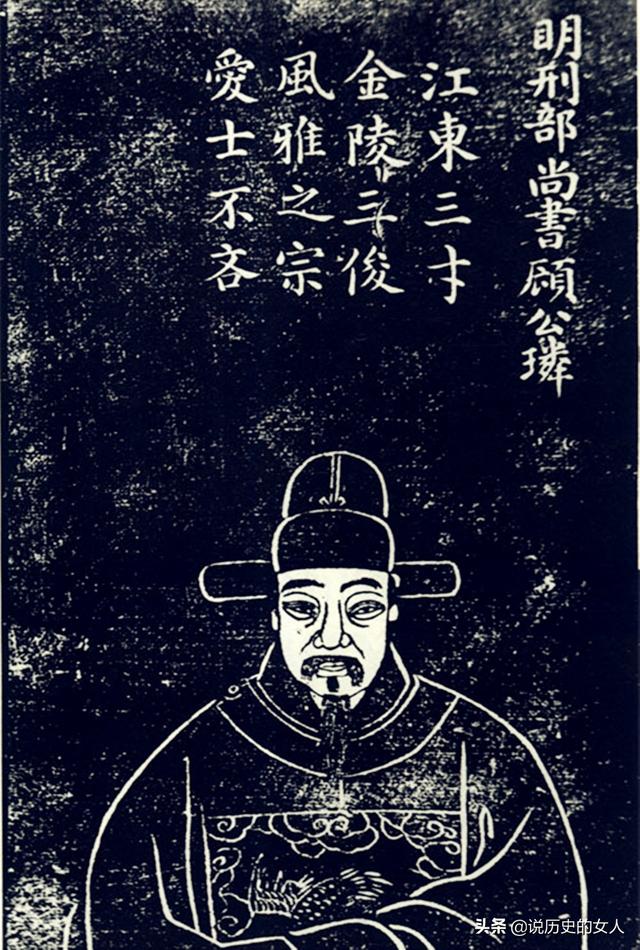 明刑部尚書顧公璘
江東三才
金陵三俊
風雅之宗
愛士不吝
头条 @说历史的女人